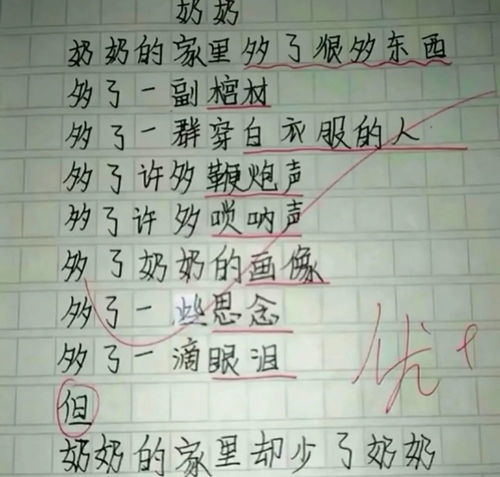 奶奶
奶奶的家里多了狠多东西
多了一副棺材
多了一群穿白衣服的人
多了许多鞭炮声
多了许多唢呐声
多了奶奶的画像
多了一些思念
多了一滴眼泪
但
奶奶的家里却少了奶奶
优+